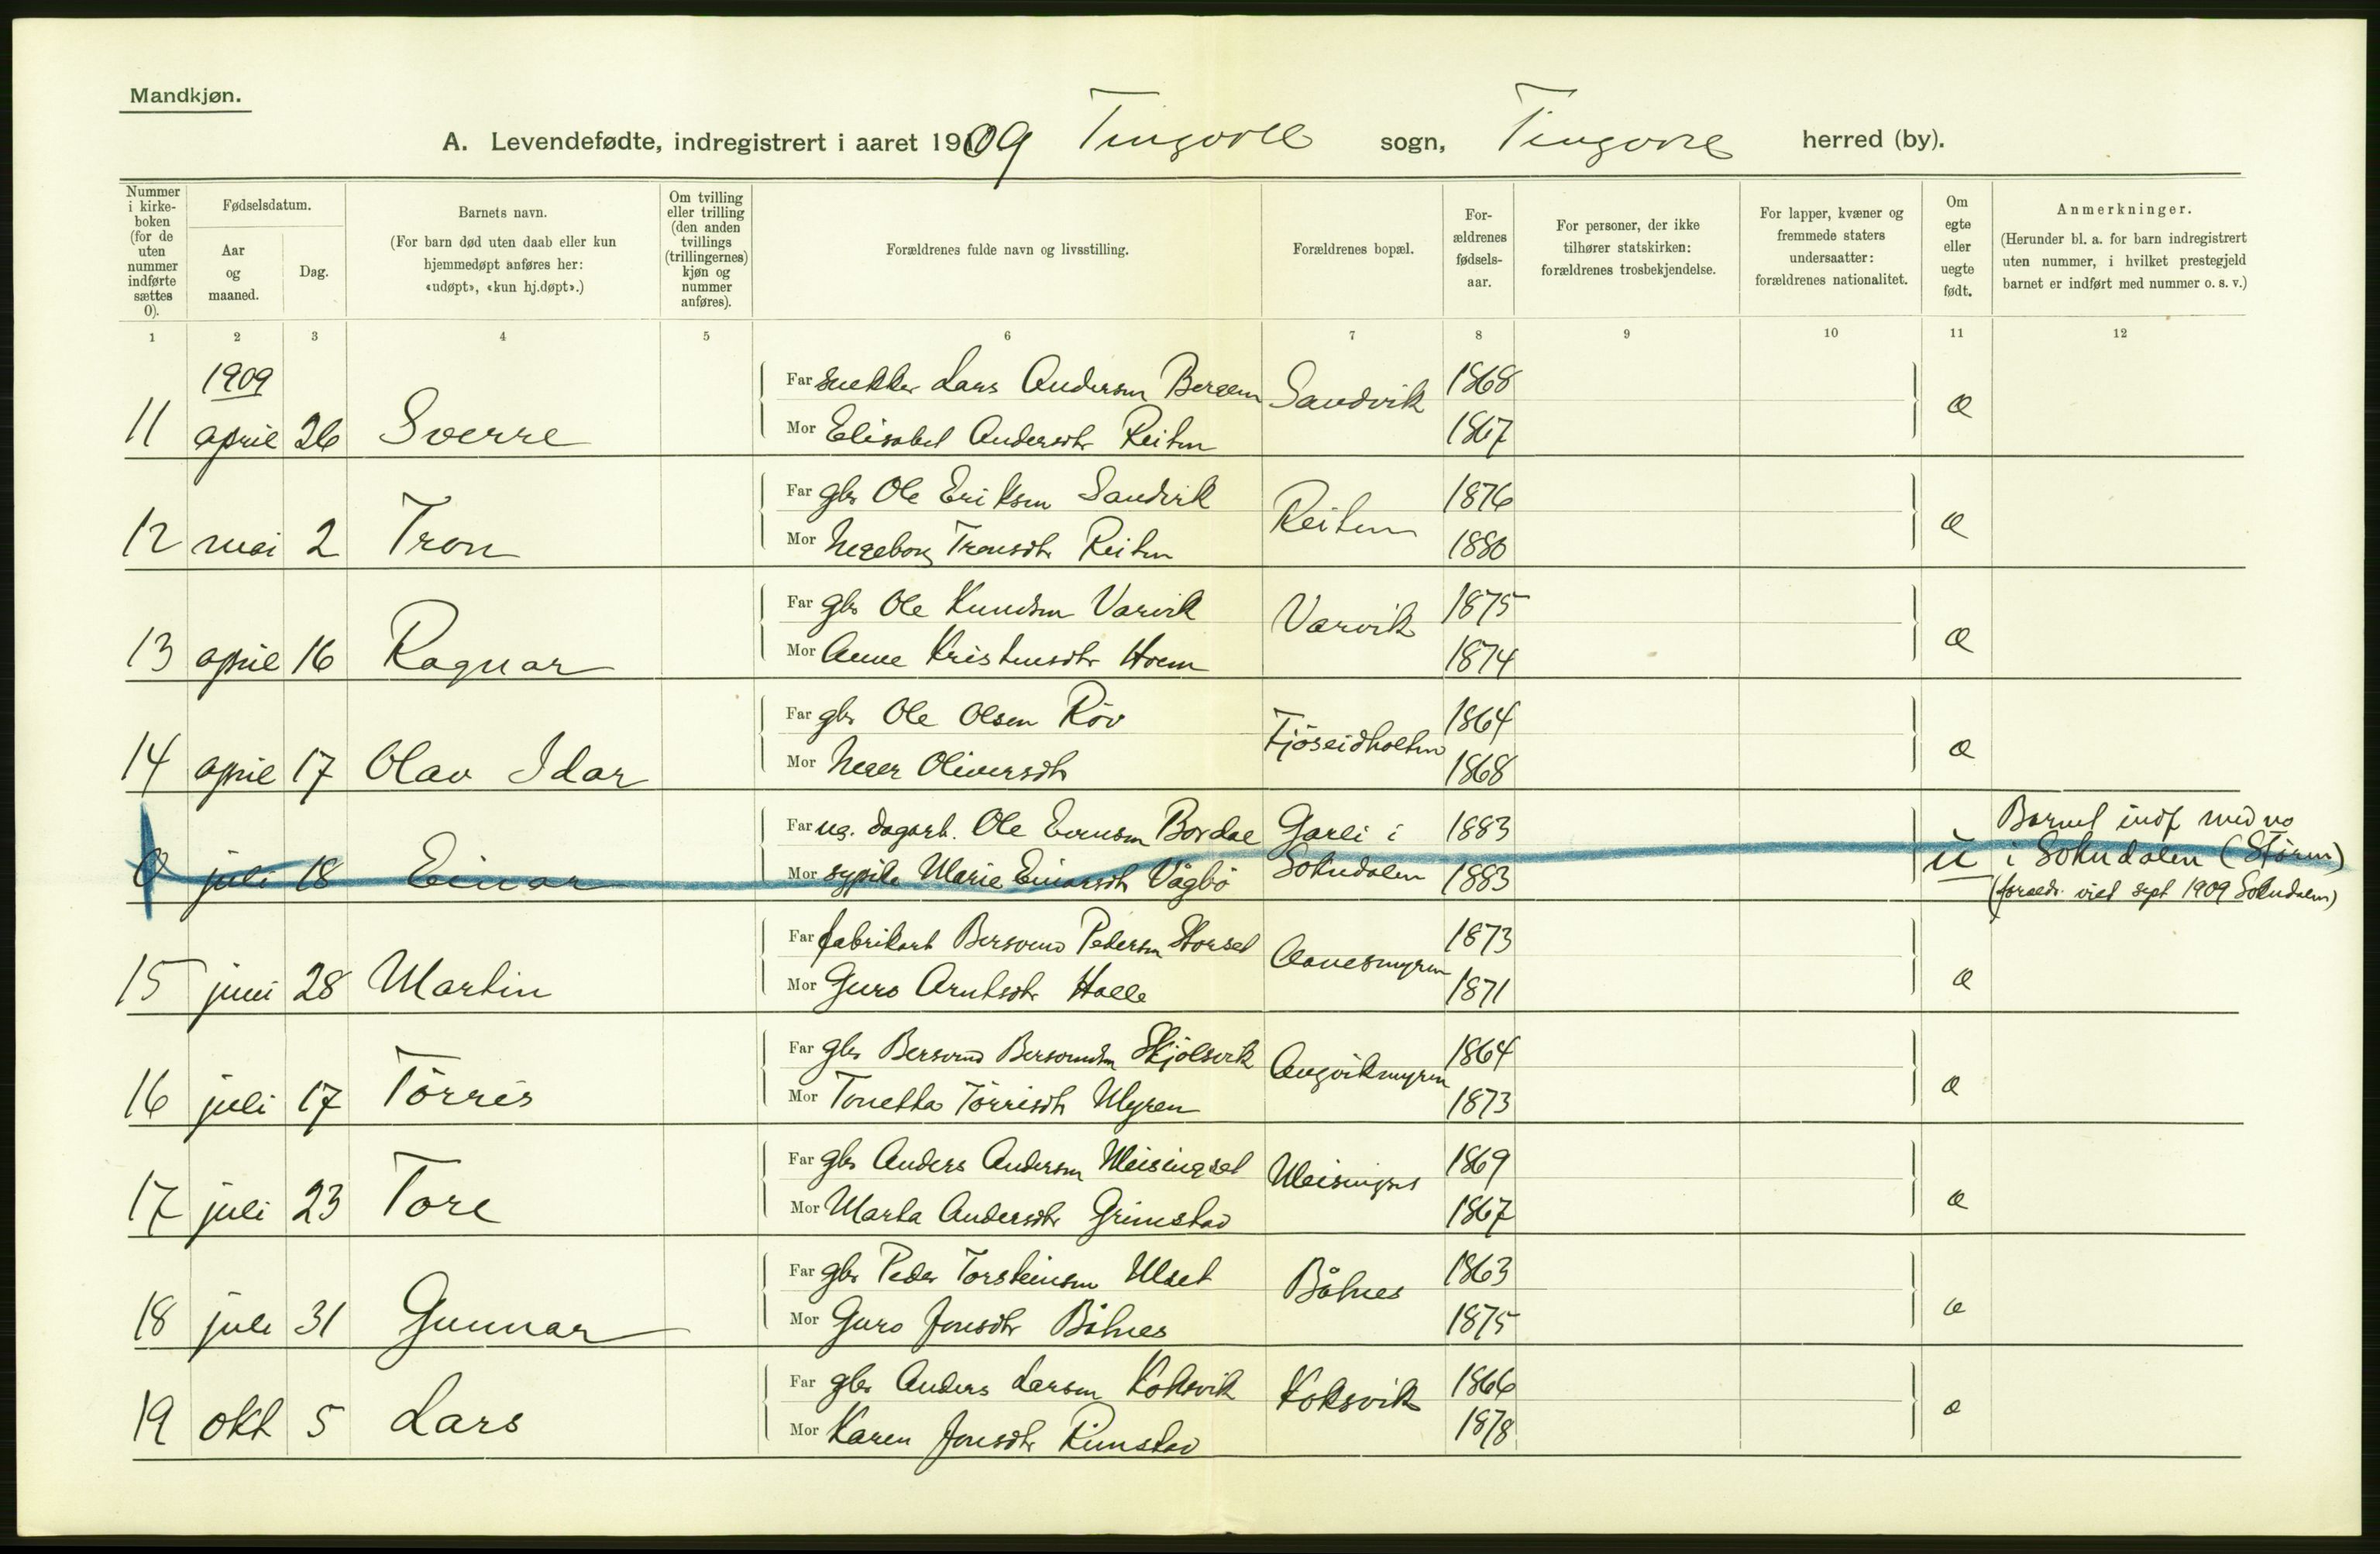 Mandkjøn.
A. Levendefødte, indregistrert i aaret 1909 Tingvoll sogn, Tingvoll herred (by).
Nummer i kirke-boken (for de uten nummer indførte sættes 0).
Fødselsdatum.
Aar og maaned.
Dag.
Barnets navn.
(For barn død uten daab eller kun hjemmedøpt anføres her: «udøpt», «kun hj.døpt».)
Om tvilling eller trilling (den anden tvillings (trillingernes) kjøn og nummer anføres).
Forældrenes fulde navn og livsstilling.
Forældrenes bopæl.
For-ældrenes fødsels-aar.
For personer, der ikke tilhører statskirken: forældrenes trosbekjendelse.
For lapper, kvæner og fremmede staters undersaatter: forældrenes nationalitet.
Om egte eller uegte født.
Anmerkninger.
(Herunder bl. a. for barn indregistrert uten nummer, i hvilket prestegjeld barnet er indført med nummer o. s. v.)
1 2 3 4 5 6 7 8 9 10 11 12
1909
Far snekker Lars Andersen Bergem Sandvik 1868
11 april 26 Sverre Mor Elisabet Andersdtr Reiten 1867 e
Far gbr Ole Eriksen Sandvik Reiten 1876
12 mai 2 Tron Mor Ingeborg Tronsdtr Reiten 1880 e
Far gbr Ole Knudsen Varvik Varvik 1875
13 april 16 Ragnar Mor Anne Kristensdtr Hoem 1874 e
Far gbr Ole Olsen Röv Fjöseidholten 1864
14 april 17 Olav Idar Mor Inger Oliversdtr 1868 e
Far ug. dagarb. Ole Evensen Bordal Garli i 1883 Barnet indf med no
0 juli 18 Einar Mor sypike Marie Einarsdtr Vågbö Sokndalen 1883 u i Sokndalen (Stören)
(foreldr. viet sept 1909 Sokndalen)
Far fabrikarb Bersvend Pedersen Storset Aanesmyren 1873
15 juni 28 Martin Mor Guro Arntsdtr Halle 1871 e
Far gbr Bersvend Bersvendsen Skjölsvik Angvikmyren 1864
16 juli 17 Törres Mor Tonetta Törrisdtr Myren 1873 e
Far gbr Anders Andersen Meisingset Meisingset 1869
17 juli 23 Tore Mor Marta Andersdtr Grimstad 1867 e
Far gbr Peder Torsteinsen Ulset Båtnes 1863
18 juli 31 Gunnar Mor Guro Jonsdtr Båtnes 1875 e
Far gbr Anders Larsen Koksvik Koksvik 1866
19 okt 5 Lars Mor Karen Jonsdtr Rimstad 1878 e